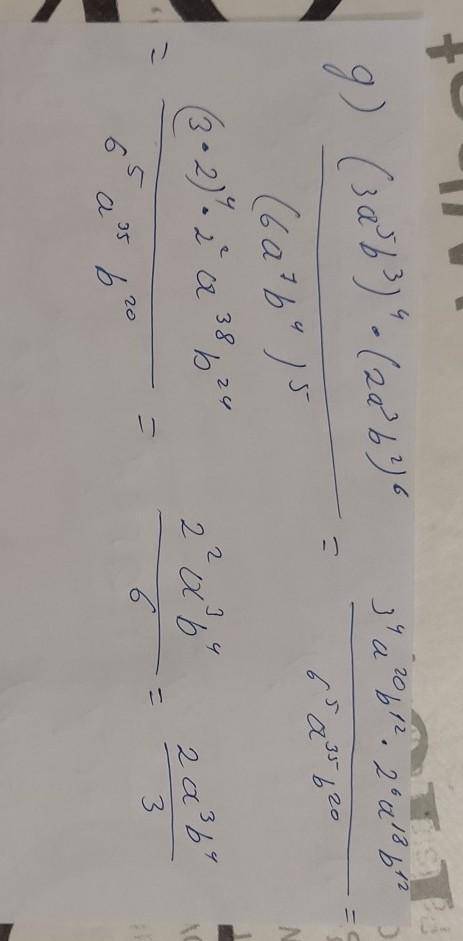 g) (3a⁵b³)⁴ • (2a³b²)⁶ / (6a⁷b⁴)⁵ = 3⁴a²⁰b¹² • 2⁶a¹⁸b¹² / 6⁵a³⁵b²⁰ =
= (3•2)⁴ • 2² a³⁸ b²⁴ / 6⁵ a³⁵ b²⁰ = 2² a³b⁴ / 6 = 2a³b⁴ / 3